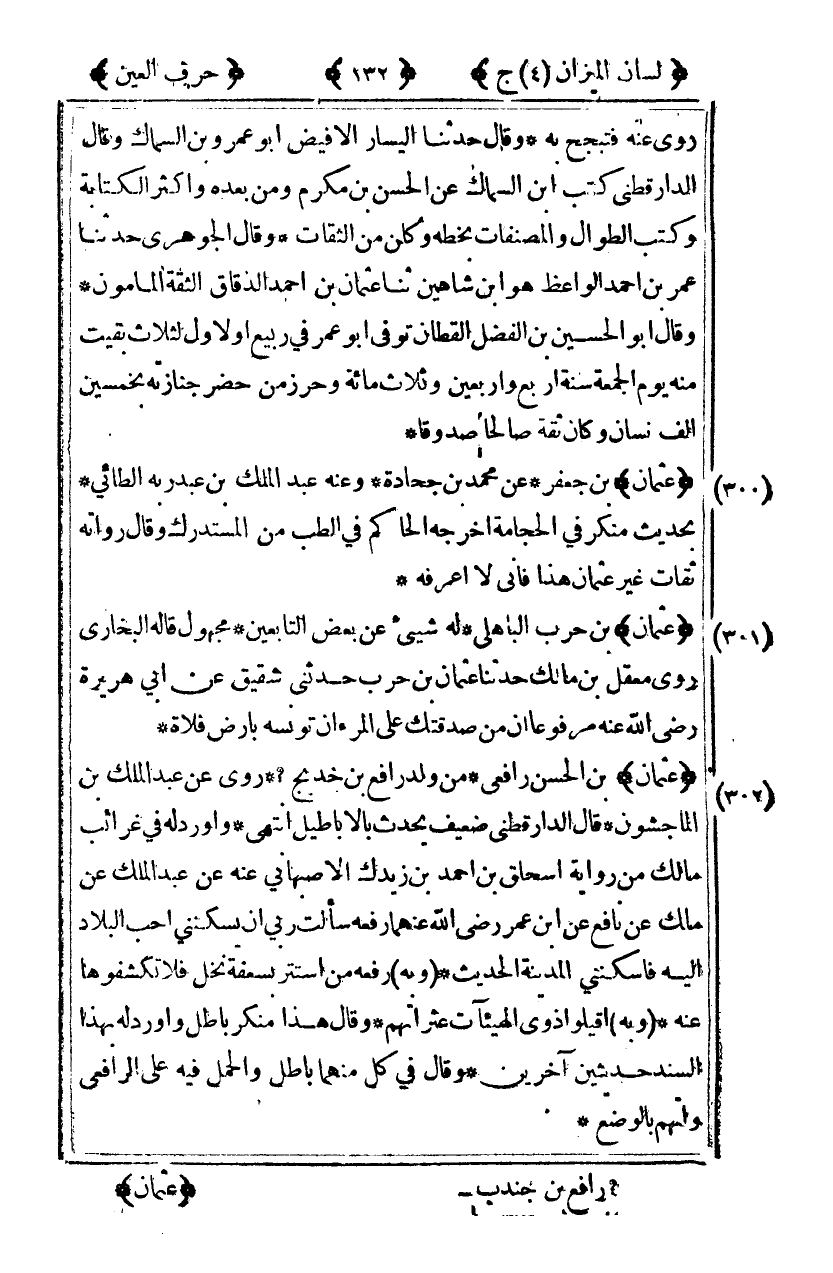 ﴿ لسان الميزان (٤) ج ﴾ ﴿ ١٣٢ ﴾ ﴿ حرف العين ﴾
روى عنه فتبجح به *وقال حدثنا اليسار الافيض ابو عمرو بن السماك وقال
الدارقطنى كتب ابن السماك عن الحسن بن مكرم ومن بعده واكثر الكتابة
وكتب الطوال والمصنفات بخطه وكان من الثقات *وقال الجوهرى حدثنا
عمر بن احمد الواعظ هو ابن شاهين ثنا عثمان بن احمد الدقاق الثقة المامون*
وقال ابو الحسين بن الفضل القطان توفى ابو عمر في ربيع اولاول لثلاث بقيت
منه يوم الجمعة سنة اربع واربعين وثلاث مائة وحرز من حضر جنازته بخمسين
الف نسان وكان ثقة صالحا صدوقا*
(٣٠٠) ﴿عثمان﴾ بن جعفر *عن محمد بن جحادة* وعنه عبد الملك بن عبدربه الطائي*
بحديث منكر في الحجامة اخرجه الحاكم في الطب من المستدرك وقال رواته
ثقات غير عثمان هذا فانى لا اعرفه *
(٣٠١) ﴿عثمان﴾ بن حرب الباهلي *له شيئ عن بعض التابعين*مجهول قاله البخارى
روى معقل بن مالك حدثنا عثمان بن حرب حدثنى شقيق عن ابي هريرة
رضى الله عنه مرفوعا ان من صدقتك على المرء ان تونسه بارض فلاة*
(٣٠٢) ﴿عثمان﴾ بن الحسن رافعى *من ولد رافع بن خديج ?*روى عن عبد الملك بن
الماجشون*قال الدارقطنى ضعيف يحدث بالاباطيل انتهى *واورد له في غرائب
مالك من رواية اسحاق بن احمد بن زيدك الاصبهاني عنه عن عبد الملك عن
مالك عن نافع عن ابن عمر رضى الله عنهما رفعه سألت ربي ان يسكننى احب البلاد
اليه فاسكننى المدينة الحديث*(وبه) رفعه من استتر بسعفة نخل فلا تكشفوها
عنه *(وبه) اقيلوا ذوى الهيئآت عثراتهم *وقال هذا منكر باطل واورد له بهذا
السند حديثين آخرين *وقال في كل منهما باطل والحمل فيه على الرافعى
واتهم بالوضع *
? رافع بن جندب ـ
﴿عثمان﴾